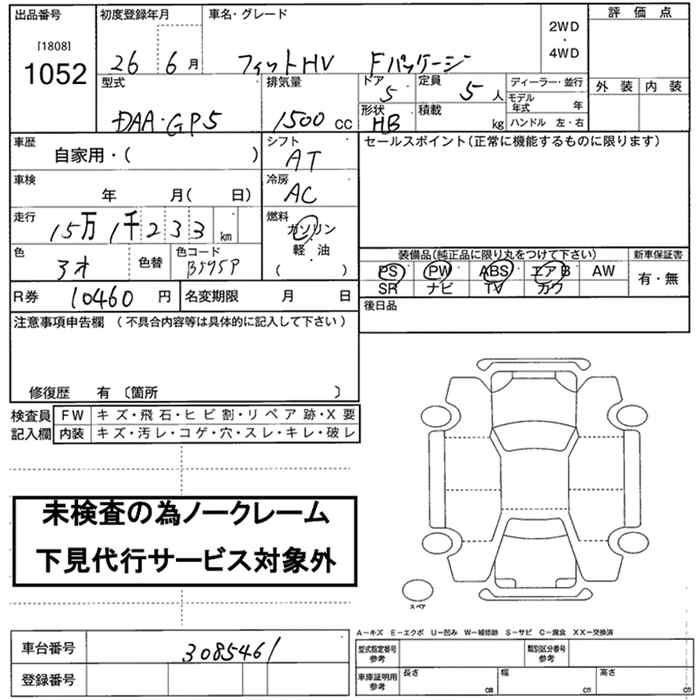 出品番号
[1808]
1052
初度登録年月
26 6 月
車名・グレード
フィットHV Fパッケージ
2WD
・
4WD
評価点
外装 内装
型式
DAA・GP5
排気量
1500 CC
ドア
5
形状
HB
定員
5 人
積載
kg
ディーラー・並行
モデル年式 年
ハンドル 左・右
車歴
自家用・( )
シフト
AT
車検
年 月( 日)
冷房
AC
走行
15万 1千 233 km
燃料
ガソリン
軽・油
( )
色
アオ
色替
色コード
B595P
R券 10460 円
名変期限 月 日
セールスポイント(正常に機能するものに限ります)
装備品(純正品に限り丸をつけて下さい)
PS PW ABS エアB AW
SR ナビ TV カワ
新車保証書
有・無
後日品
注意事項申告欄 (不具合内容等は具体的に記入して下さい)
修復歴 有 〔箇所 〕
検査員記入欄
FW キズ・飛石・ヒビ割・リペア跡・X要
内装 キズ・汚レ・コゲ・穴・スレ・キレ・破レ
未検査の為ノークレーム
下見代行サービス対象外
スペア
車台番号 3085461
登録番号
A－キズ E－エクボ U－凹み W－補修跡 S－サビ C－腐食 XX－交換済
型式指定番号
参考
類別区分番号
参考
車庫証明用
参考
長さ cm
幅 cm
高さ cm